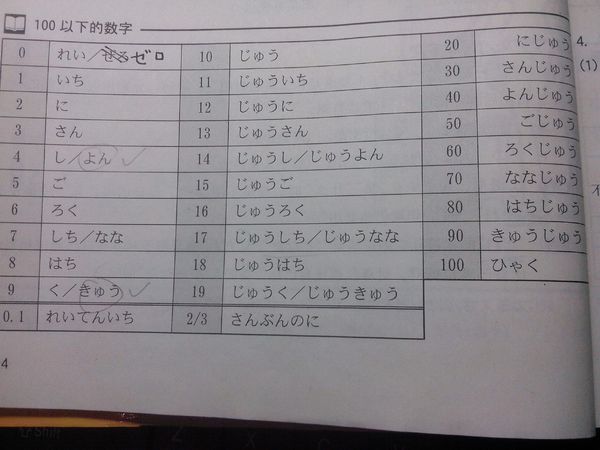 100以下的数字
0 れい／ぜろ ゼロ 10 じゅう 20 にじゅう
1 いち 11 じゅういち 30 さんじゅう
2 に 12 じゅうに 40 よんじゅう
3 さん 13 じゅうさん 50 ごじゅう
4 し／よん 14 じゅうし／じゅうよん 60 ろくじゅう
5 ご 15 じゅうご 70 ななじゅう
6 ろく 16 じゅうろく 80 はちじゅう
7 しち／なな 17 じゅうしち／じゅうなな 90 きゅうじゅう
8 はち 18 じゅうはち 100 ひゃく
9 く／きゅう 19 じゅうく／じゅうきゅう
0.1 れいてんいち 2/3 さんぶんのに
4
4.
(1)
Shift
Z
X
C